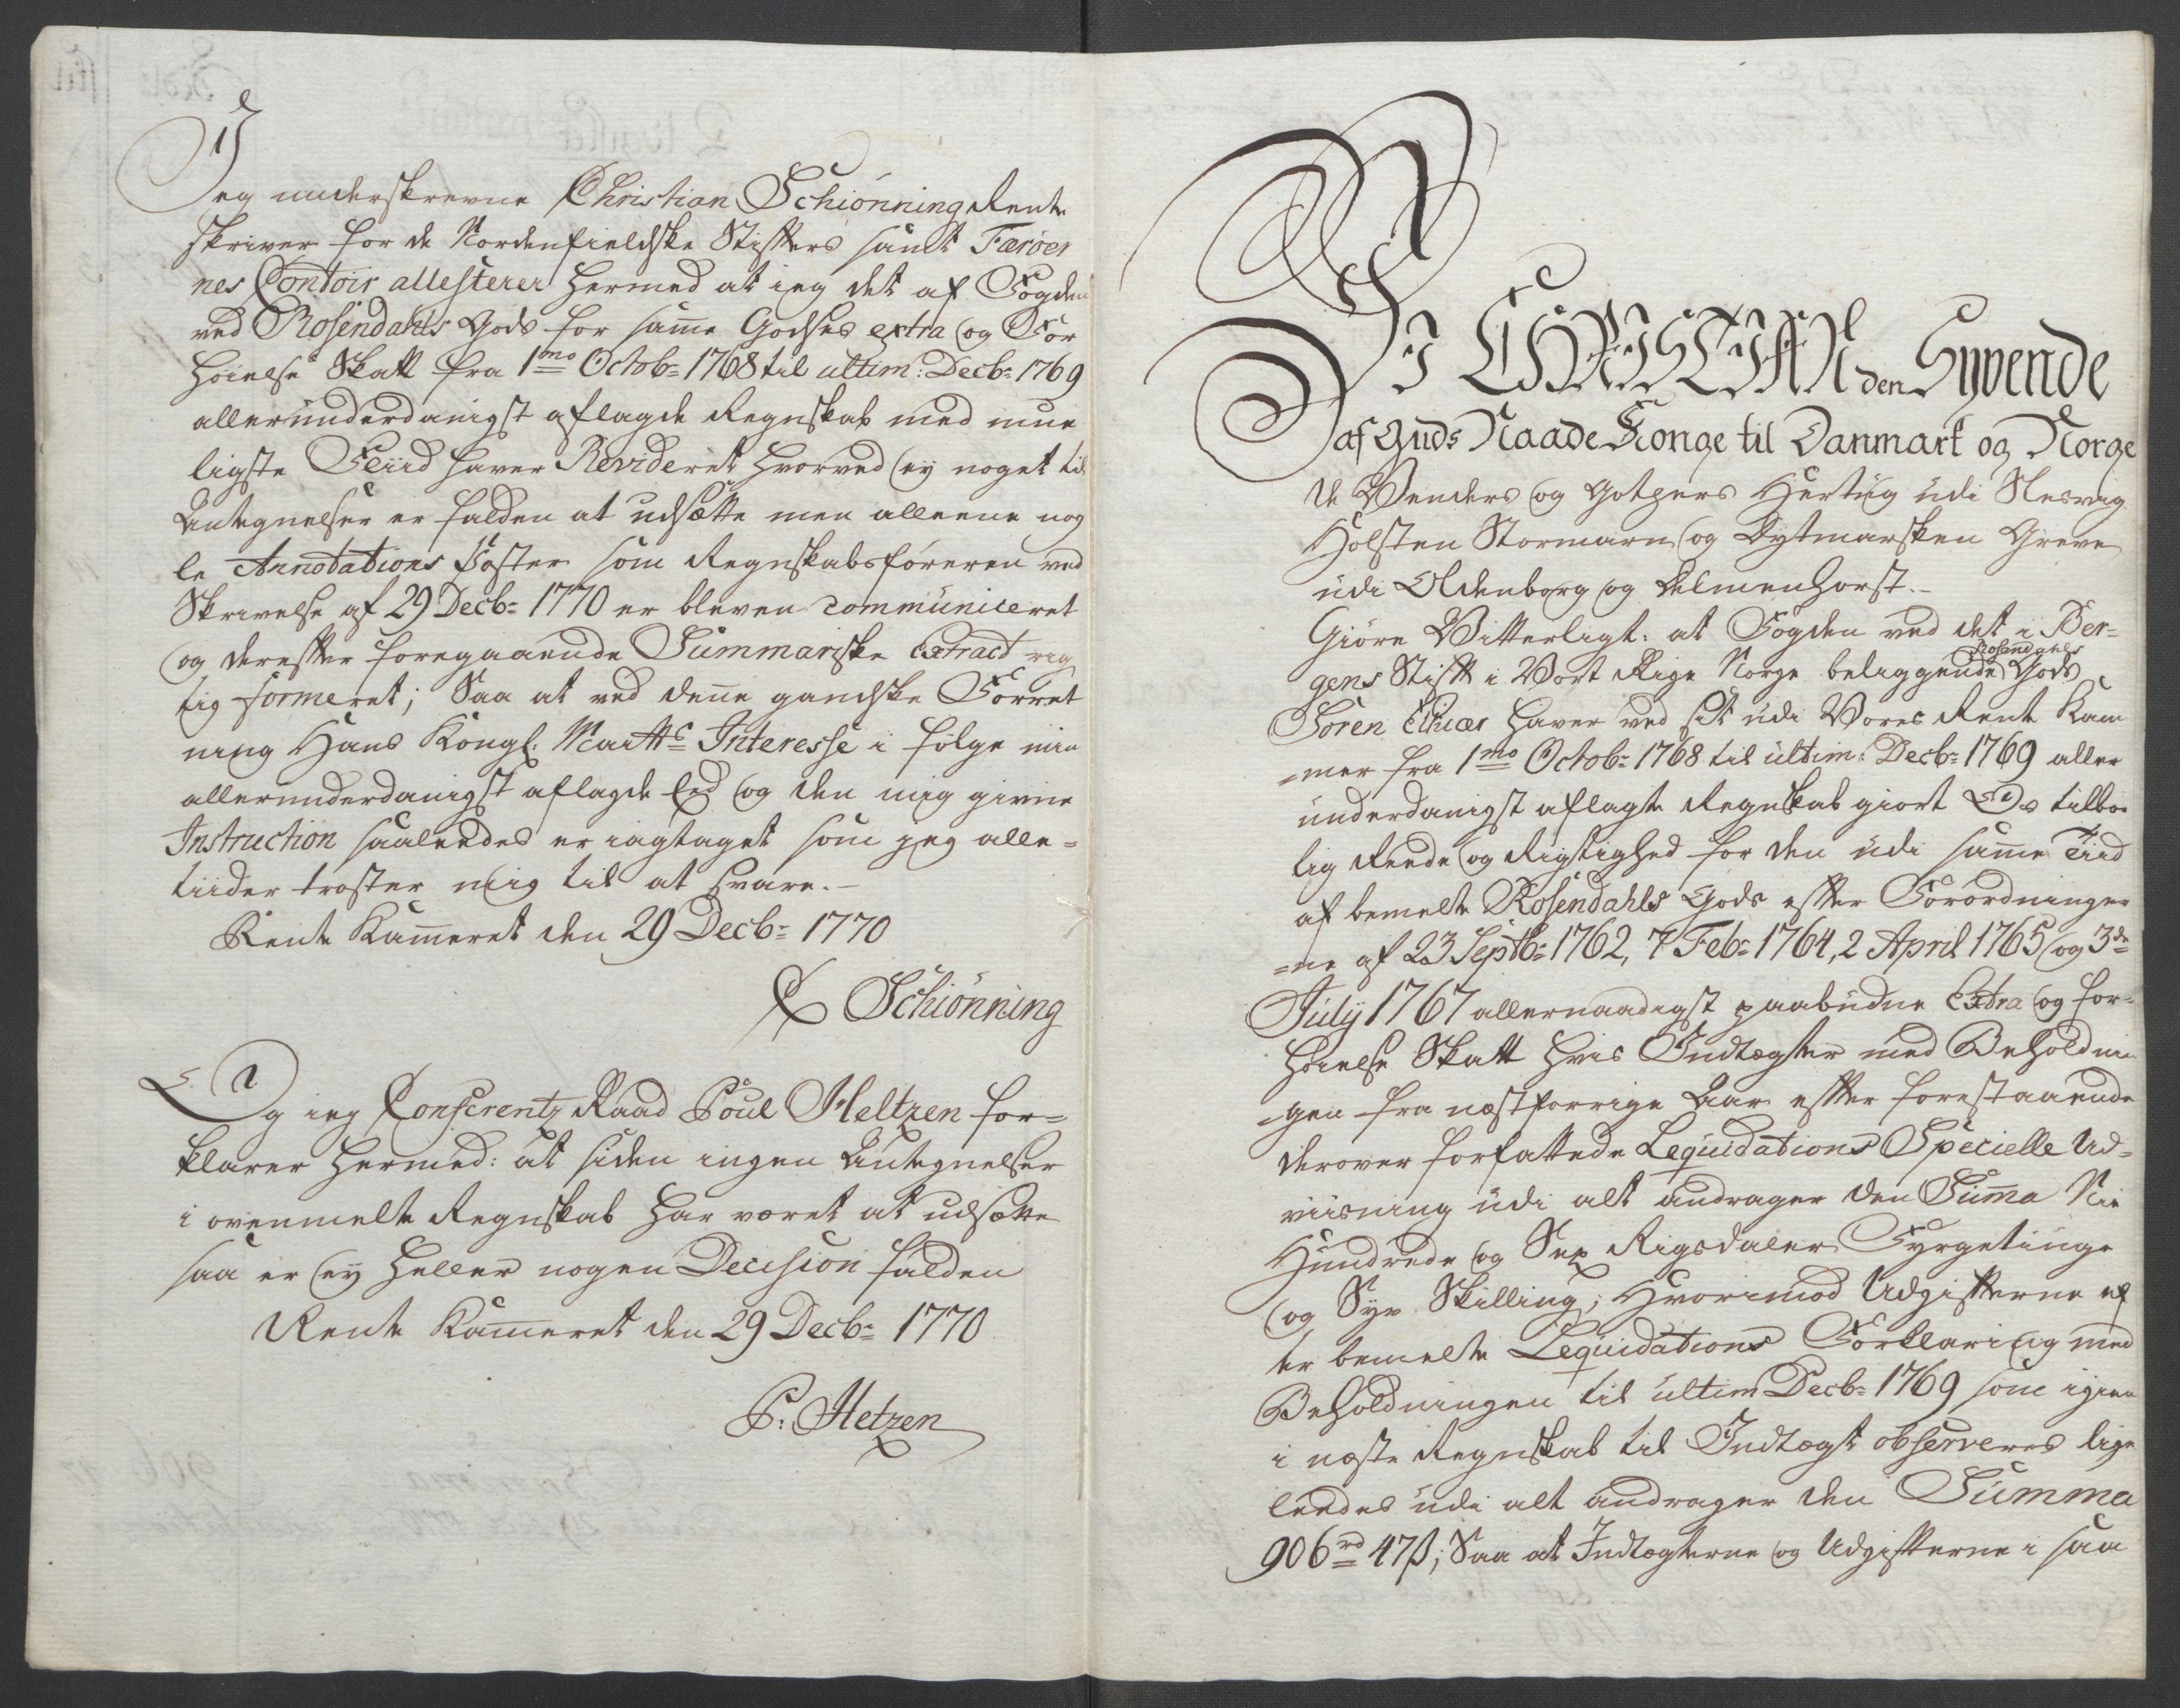 Jeg underskrevne Christian Schiønning Rente
skriver for de Nordenfieldske Stifters samt Færøer
nes Contoir attesterer hermed at ieg det af Fogden
ved Rosendahls Gods for samme Godses extra og For
høielse Skatt fra 1mo Octobr 1768 til ultim: Decbr 1769
allerunderdanigst aflagde Regnskab med mue
ligste Fliid haver Revideret hvorved ey noget til
Antegnelser er falden at udsætte men alleene nog
le Annotations Poster som Regnskabsføreren ved
Skrivelse af 29 Decbr 1770 er bleven communiceret
og derefter foregaaende Summariske Extract rig
tig formeret; Saa at ved denne gandske Forret
ning Hans Kongl: Maitts Interesse i følge min
allerunderdanigst aflagde Eed og den mig givne
Instruction saaledes er iagtaget som jeg alle=
tiider trøster mig til at svare.
Rente Kammeret den 29 Decbr 1770
C Schiønning
Og ieg Conferentz Raad Poul Heltzen for=
klarer hermed: at siden ingen Antegnelser
i ovenmelte Regnskab har været at udsætte
saa er ey heller nogen Decision falden
Rente Kammeret den 29 Decbr 1770
P: Heltzen
VI CHRISTIAN den Syvende
af Guds Naade Konge til Danmark og Norge
de Wenders og Gothers Hertug udi Slesvig
Holsten Stormarn og Dytmarsken Greve
udi Oldenborg og Delmenhorst.
Giøre Witterligt: at Fogden ved det i Ber=
gens Stift i Vort Rige Norge beliggende Rosendahls Gods
Søren haver ved sit udi Vores Rente Kam
=mer fra 1mo Octobr 1768 til ultim: Decbr 1769 aller
underdanigst aflagte Regnskab giort Os tilbør
lig Reede og Rigtighed for den udi samme Tiid
af bemelte Rosendahls Gods efter Forordninger
=ne af 23 Septbr 1762, 7 Febr 1764, 2 April 1765 og 3de
July 1767 allernaadigst paabudne Extra og For=
høielse Skatt hvis Indtægter med Beholdnin
=gen fra næstforrige Aar efter forestaaende
derover forfattede Liquidations Specielle Ud=
viisning udi alt andrager den Summa Nie
Hundrede og Sex Rigsdaler Fyrgetiuge
og Syv Skilling; Hvorimod Udgifterne ef
ter bemelte Liquidations Forklaring med
Beholdningen til ultim Decbr 1769 som igien
i næste Regnskab til Indtægt observeres lige
leedes udi alt andrager den Summa
906 rd 47 ß; Saa at Indtægterne og Udgifterne i saa